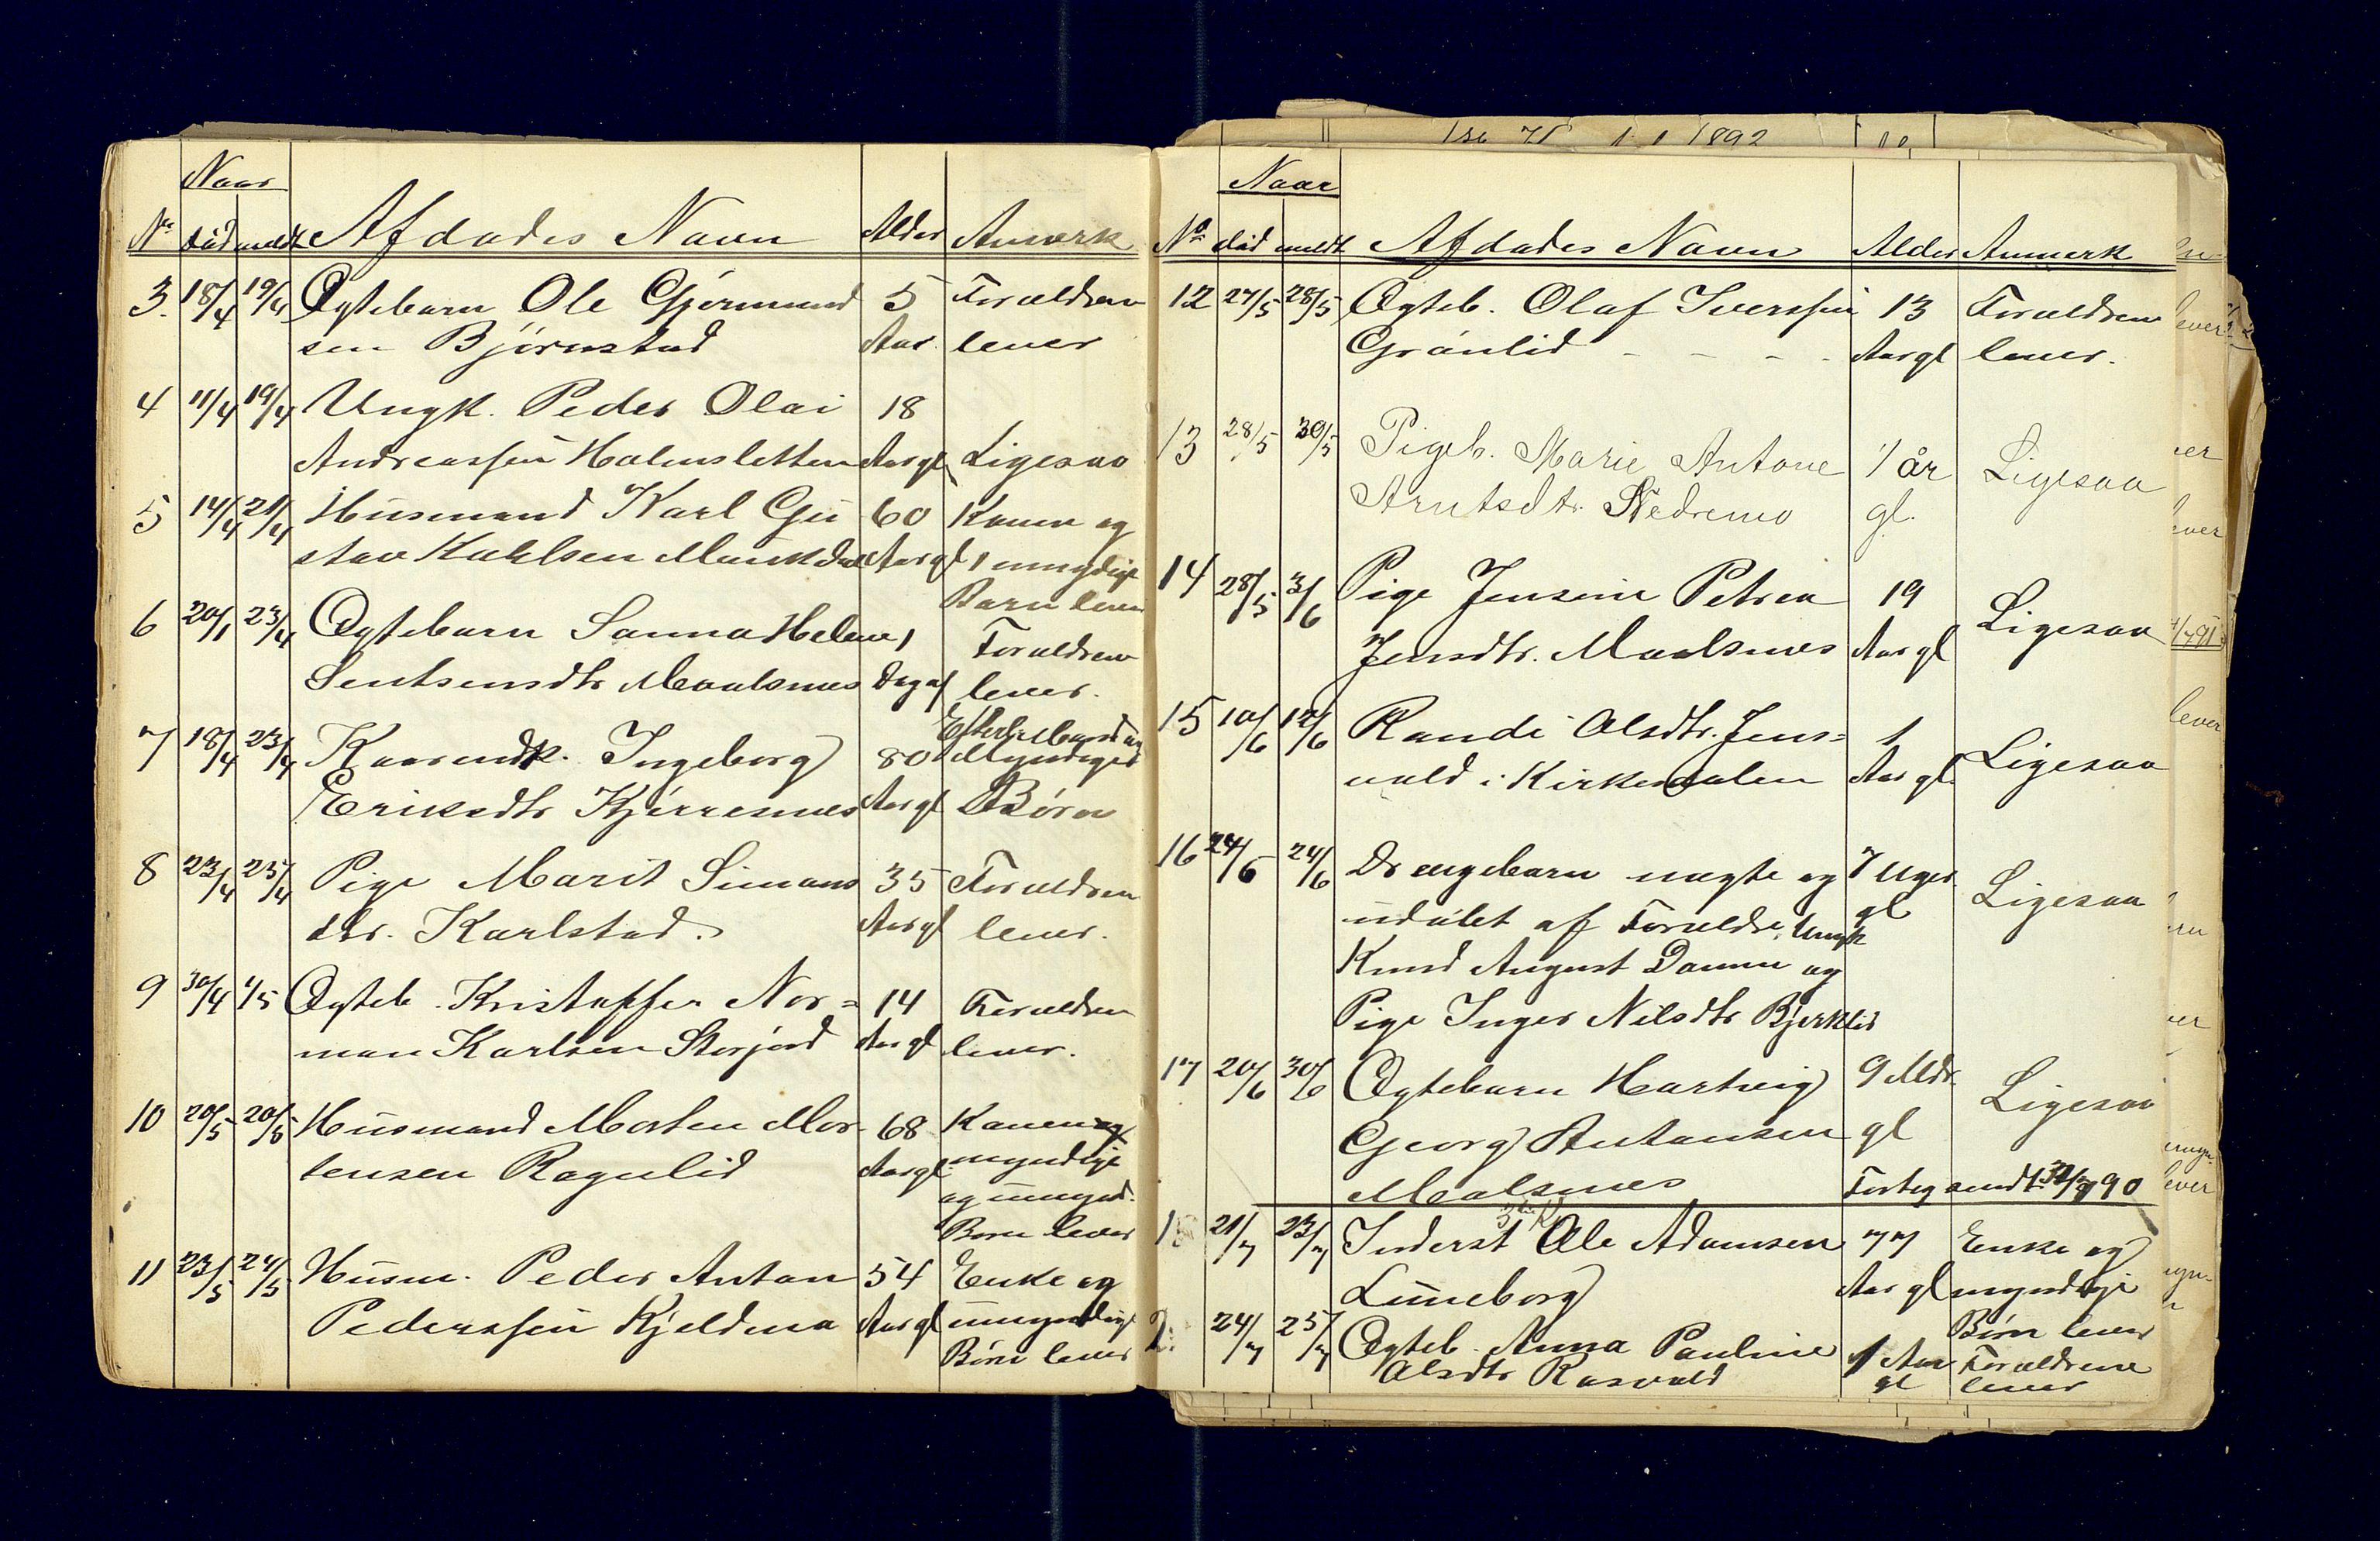 Naar
No død meldt Afdødes Navn Alder Anmerk
3. 18/4 19/4 Ægtebarn Ole Gjørmund 5 Forældrene
sen Bjørnstad Aar. lever
4 11/4 19/4 Ungk. Peder Olai 18
Andreassen Holmsletten Aar gl. Ligesaa
5 14/4 21/4 Husmand Karl Gu 60 Konen og
stav Kahlsen Maukdal Aar gl 1 umyndigt
Barn lever
6 20/1 23/4 Ægtebarn Sanna Helene 1 Forældrene
Sentsensdtr Maalsnes Dag gl lever.
7 18/4 23/4 Kaarendk. Ingeborg 80 Efterl. Mand og Myndiges
Eriksdtr Kjerresnes Aar gl Børn
8 23/4 25/4 Pige Marit Simons 35 Forældrene
dtr. Karlstad. Aar gl lever.
9 30/4 1/5 Ægteb. Kristoffer Nor= 14 Forældrene
man Karlsen Storjord Aar gl lever.
10 20/5 20/5 Husmand Morten Mor 68 Konen og
tensen Rognlid Aar gl. myndige
og umynd.
Børn lever
11 23/5 24/5 Husm. Peder Anton 54 Enke og
Pederssen Kjeldmo Aar gl umyndige
Børn lever
1892
Naar
No død meldt Afdødes Navn Alder Anmerk
12 27/5 28/5 Ægteb. Olaf Iverssen 13 Forældrene
Grønlid - - - - Aar gl lever.
13 28/5 30/5 Pigeb. Marie Antone 1 år Ligesaa
Arntsdtr. Nedremo gl.
14 28/5 3/6 Pige Jensine Petrea 19 Ligesaa
Jensdtr. Maalsnes Aar gl
15 10/6 12/6 Randi Olsdtr. Jens= 1 Ligesaa
vold i Kirkesdalen Aar gl.
16 24/6 24/6 Drengebarn uægte og 7 Uger Ligesaa
udøbt af Forældre Ungk gl
Knud August Damm og
Pige Inger Nilsdtr Bjerklid
17 20/6 30/6 Ægtebarn Hartvig 9 Mdr. Ligesaa
Georg Antonsen gl
Maalsnes Forteg sendt 90
1 21/7 23/7 Inderst Ole Adamsen 77 Enke og
Luneborg Aar gl myndige
Børn lever
2. 24/7 25/7 Ægteb. Anna Pauline 1 Aar Forældrene
Olsdtr Rosvold gl lever